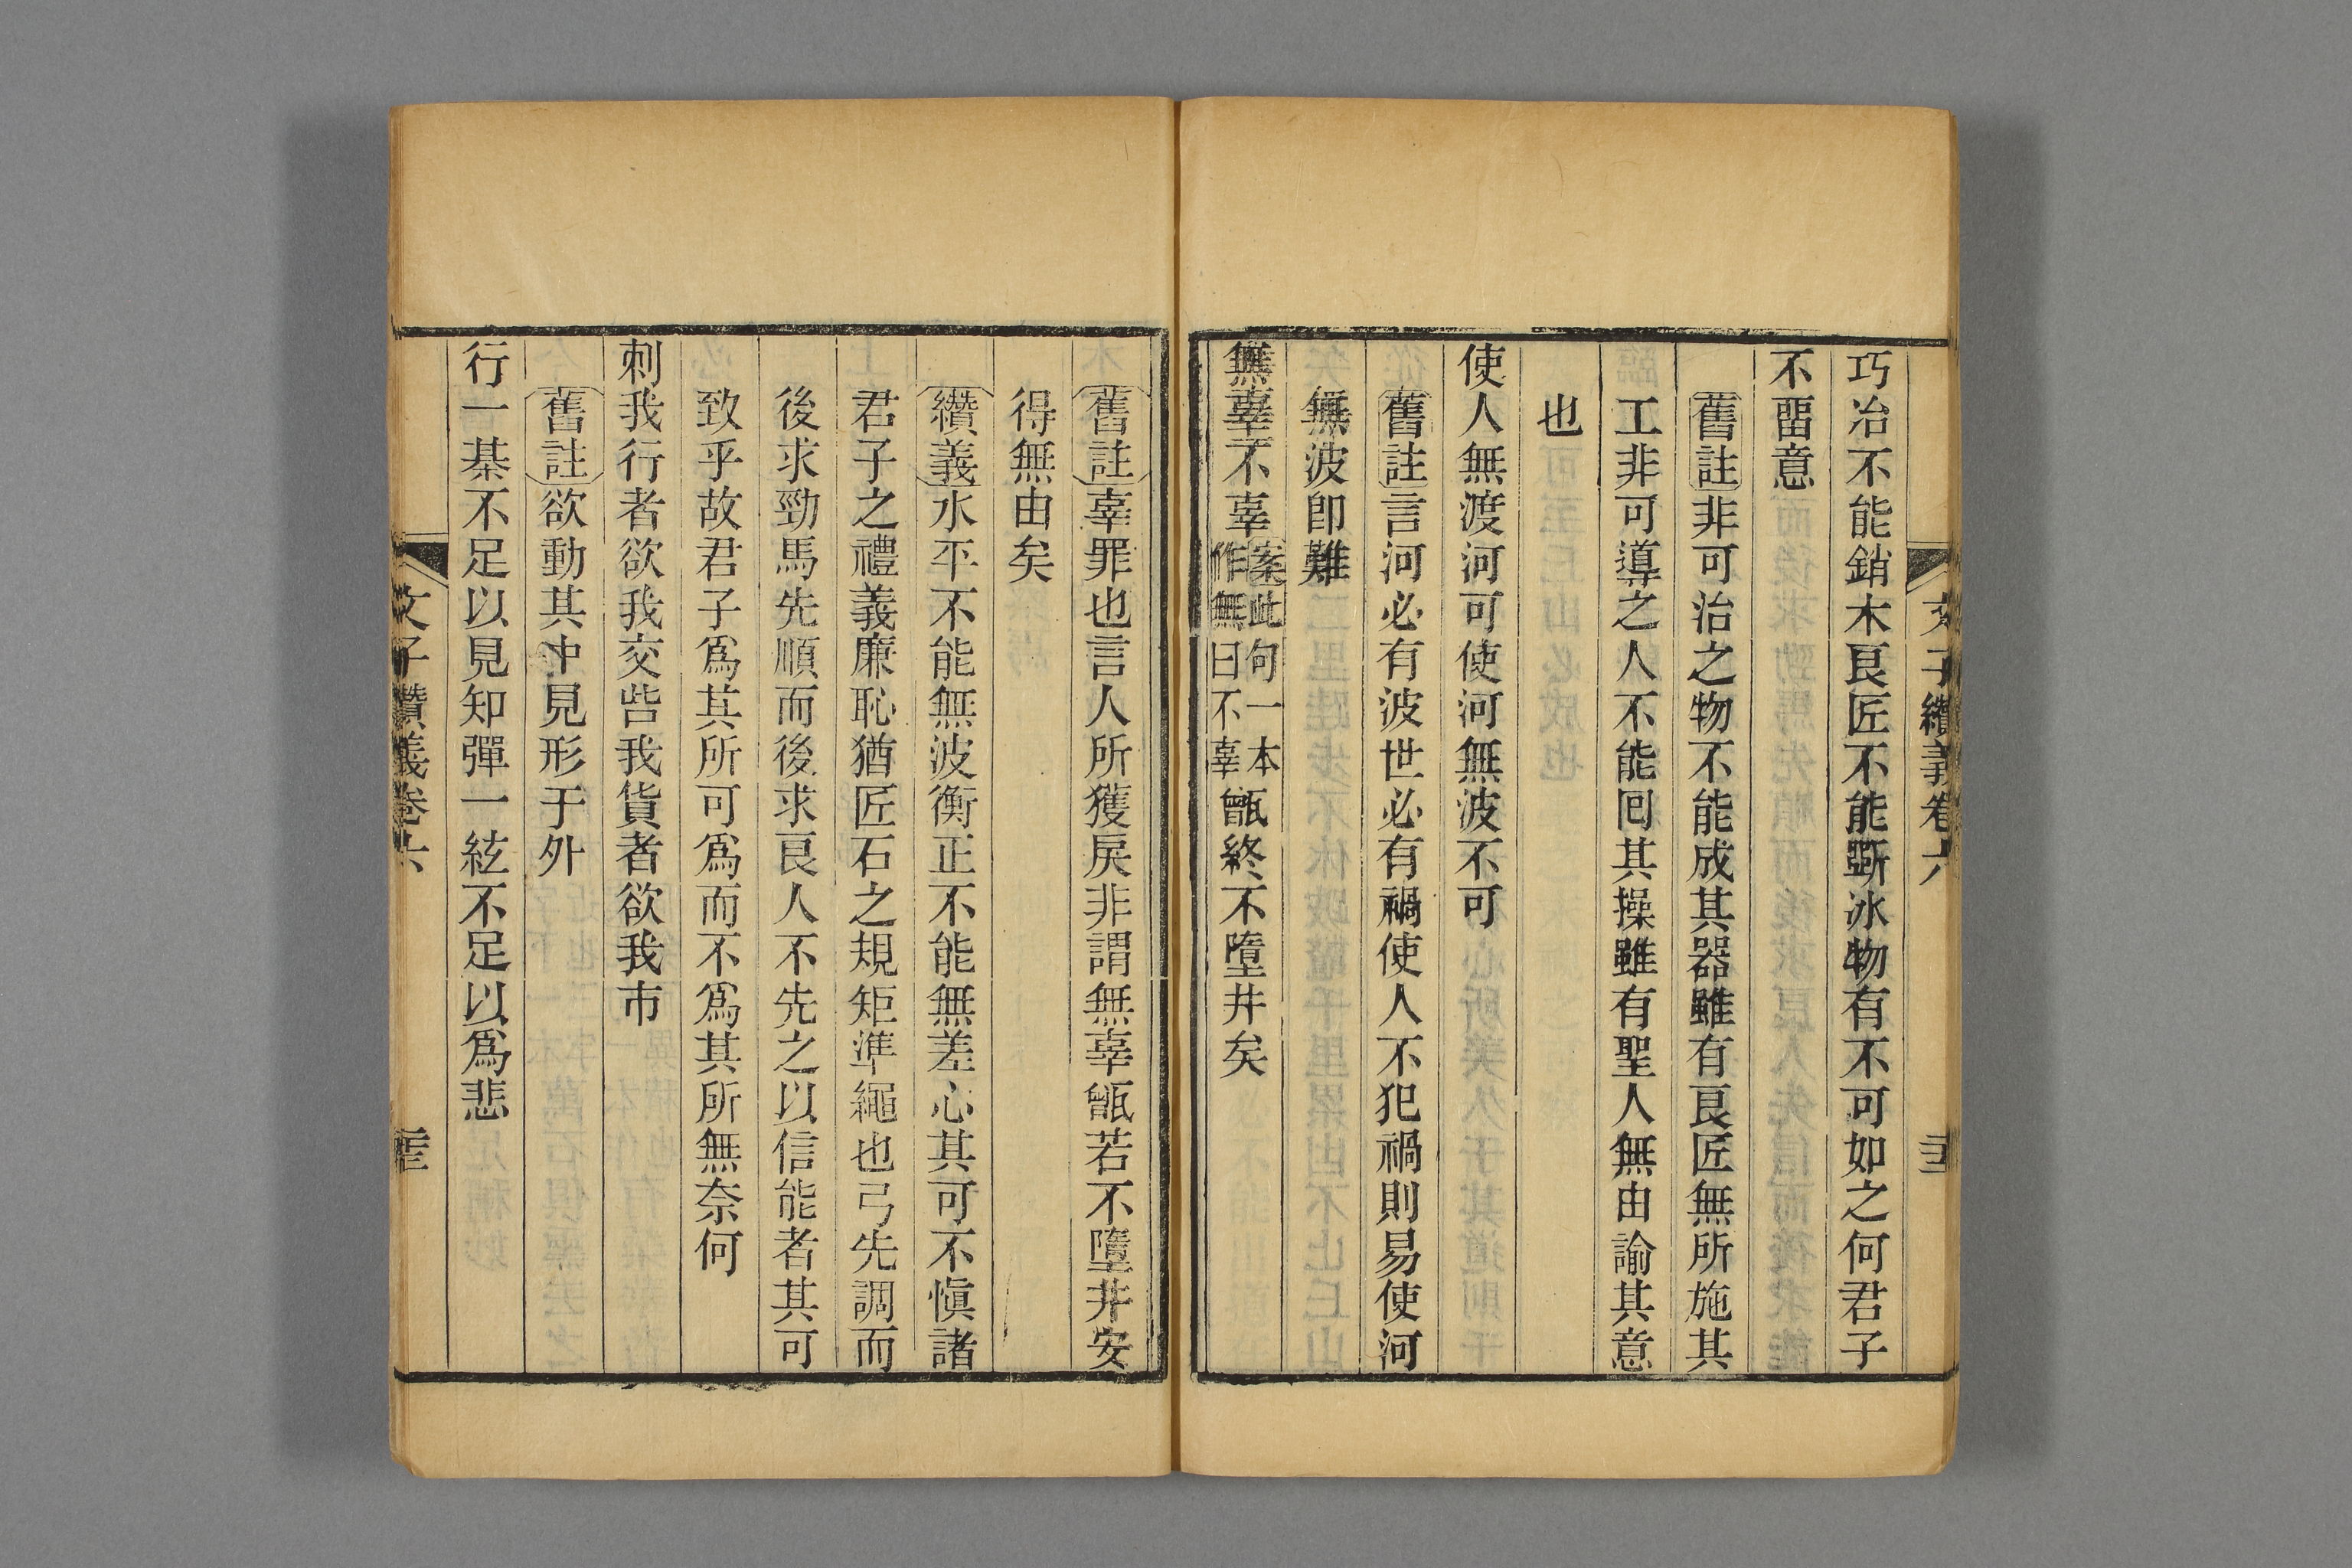 文子纘義卷六
巧冶不能銷木良匠不能斵冰物有不可如之何君子
不畱意
舊註非可治之物不能成其器雖有良匠無所施其
工非可導之人不能回其操雖有聖人無由諭其意
也
使人無渡河可使河無波不可
舊註言河必有波世必有禍使人不犯禍則易使河
無波即難
無辜不辜案此句一本作無曰不辜甑終不墮井矣
舊註辜罪也言人所獲戾非謂無辜甑若不墮井安
得無由矣
纘義水平不能無波衡正不能無差心其可不愼諸
君子之禮義廉恥猶匠石之規矩準繩也弓先調而
後求勁馬先順而後求良人不先之以信能者其可
致乎故君子爲其所可爲而不爲其所無奈何
刺我行者欲我交呰我貨者欲我市
舊註欲動其中見形于外
行一棊不足以見知彈一絃不足以爲悲
文子纘義卷六